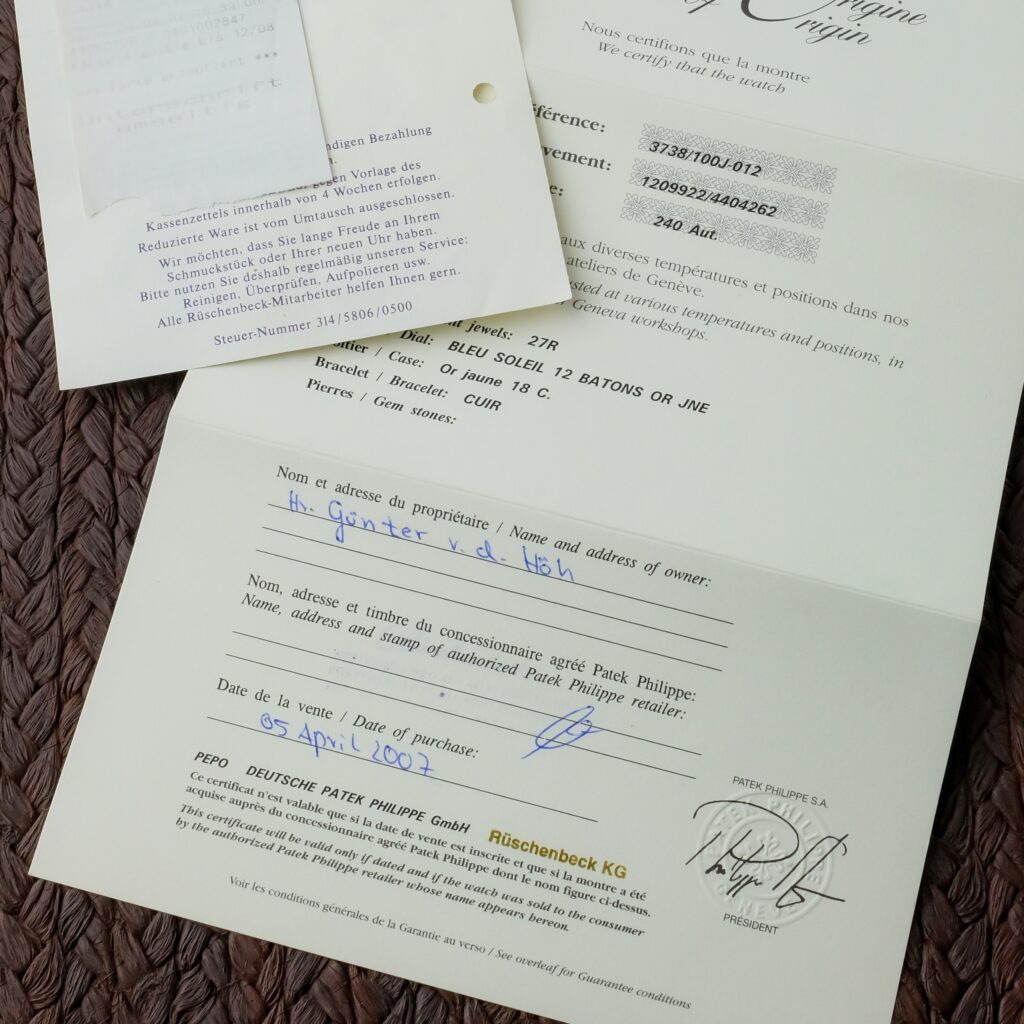 0401002847
bis 12/08
akzeptiert ***
Unterschrift
umseitig
ndigen Bezahlung
gegen Vorlage des
Kassenzettels innerhalb von 4 Wochen erfolgen.
Reduzierte Ware ist vom Umtausch ausgeschlossen.
Wir möchten, dass Sie lange Freude an Ihrem
Schmuckstück oder Ihrer neuen Uhr haben.
Bitte nutzen Sie deshalb regelmäßig unseren Service:
Reinigen, Überprüfen, Aufpolieren usw.
Alle Rüschenbeck-Mitarbeiter helfen Ihnen gern.
Steuer-Nummer 314/5806/0500
Origine
of Origin
Nous certifions que la montre
We certify that the watch
férence: 3738/100J-012
vement: 1209922/4404262
e: 240 Aut.
aux diverses températures et positions dans nos
ateliers de Genève.
sted at various temperatures and positions, in
r Geneva workshops.
jewels: 27R
Dial: BLEU SOLEIL 12 BATONS OR JNE
oîtier / Case: Or jaune 18 C.
Bracelet / Bracelet: CUIR
Pierres / Gem stones:
Nom et adresse du propriétaire / Name and address of owner:
Hr. Günter v. d. Höh
Nom, adresse et timbre du concessionnaire agréé Patek Philippe:
Name, address and stamp of authorized Patek Philippe retailer:
Date de la vente / Date of purchase:
05 April 2007
PEPO DEUTSCHE PATEK PHILIPPE GmbH
Rüschenbeck KG
Ce certificat n'est valable que si la date de vente est inscrite et que si la montre a été
acquise auprès du concessionnaire agréé Patek Philippe dont le nom figure ci-dessus.
This certificate will be valid only if dated and if the watch was sold to the consumer
by the authorized Patek Philippe retailer whose name appears hereon.
Voir les conditions générales de la Garantie au verso / See overleaf for Guarantee conditions
PATEK PHILIPPE S.A.
PRÉSIDENT